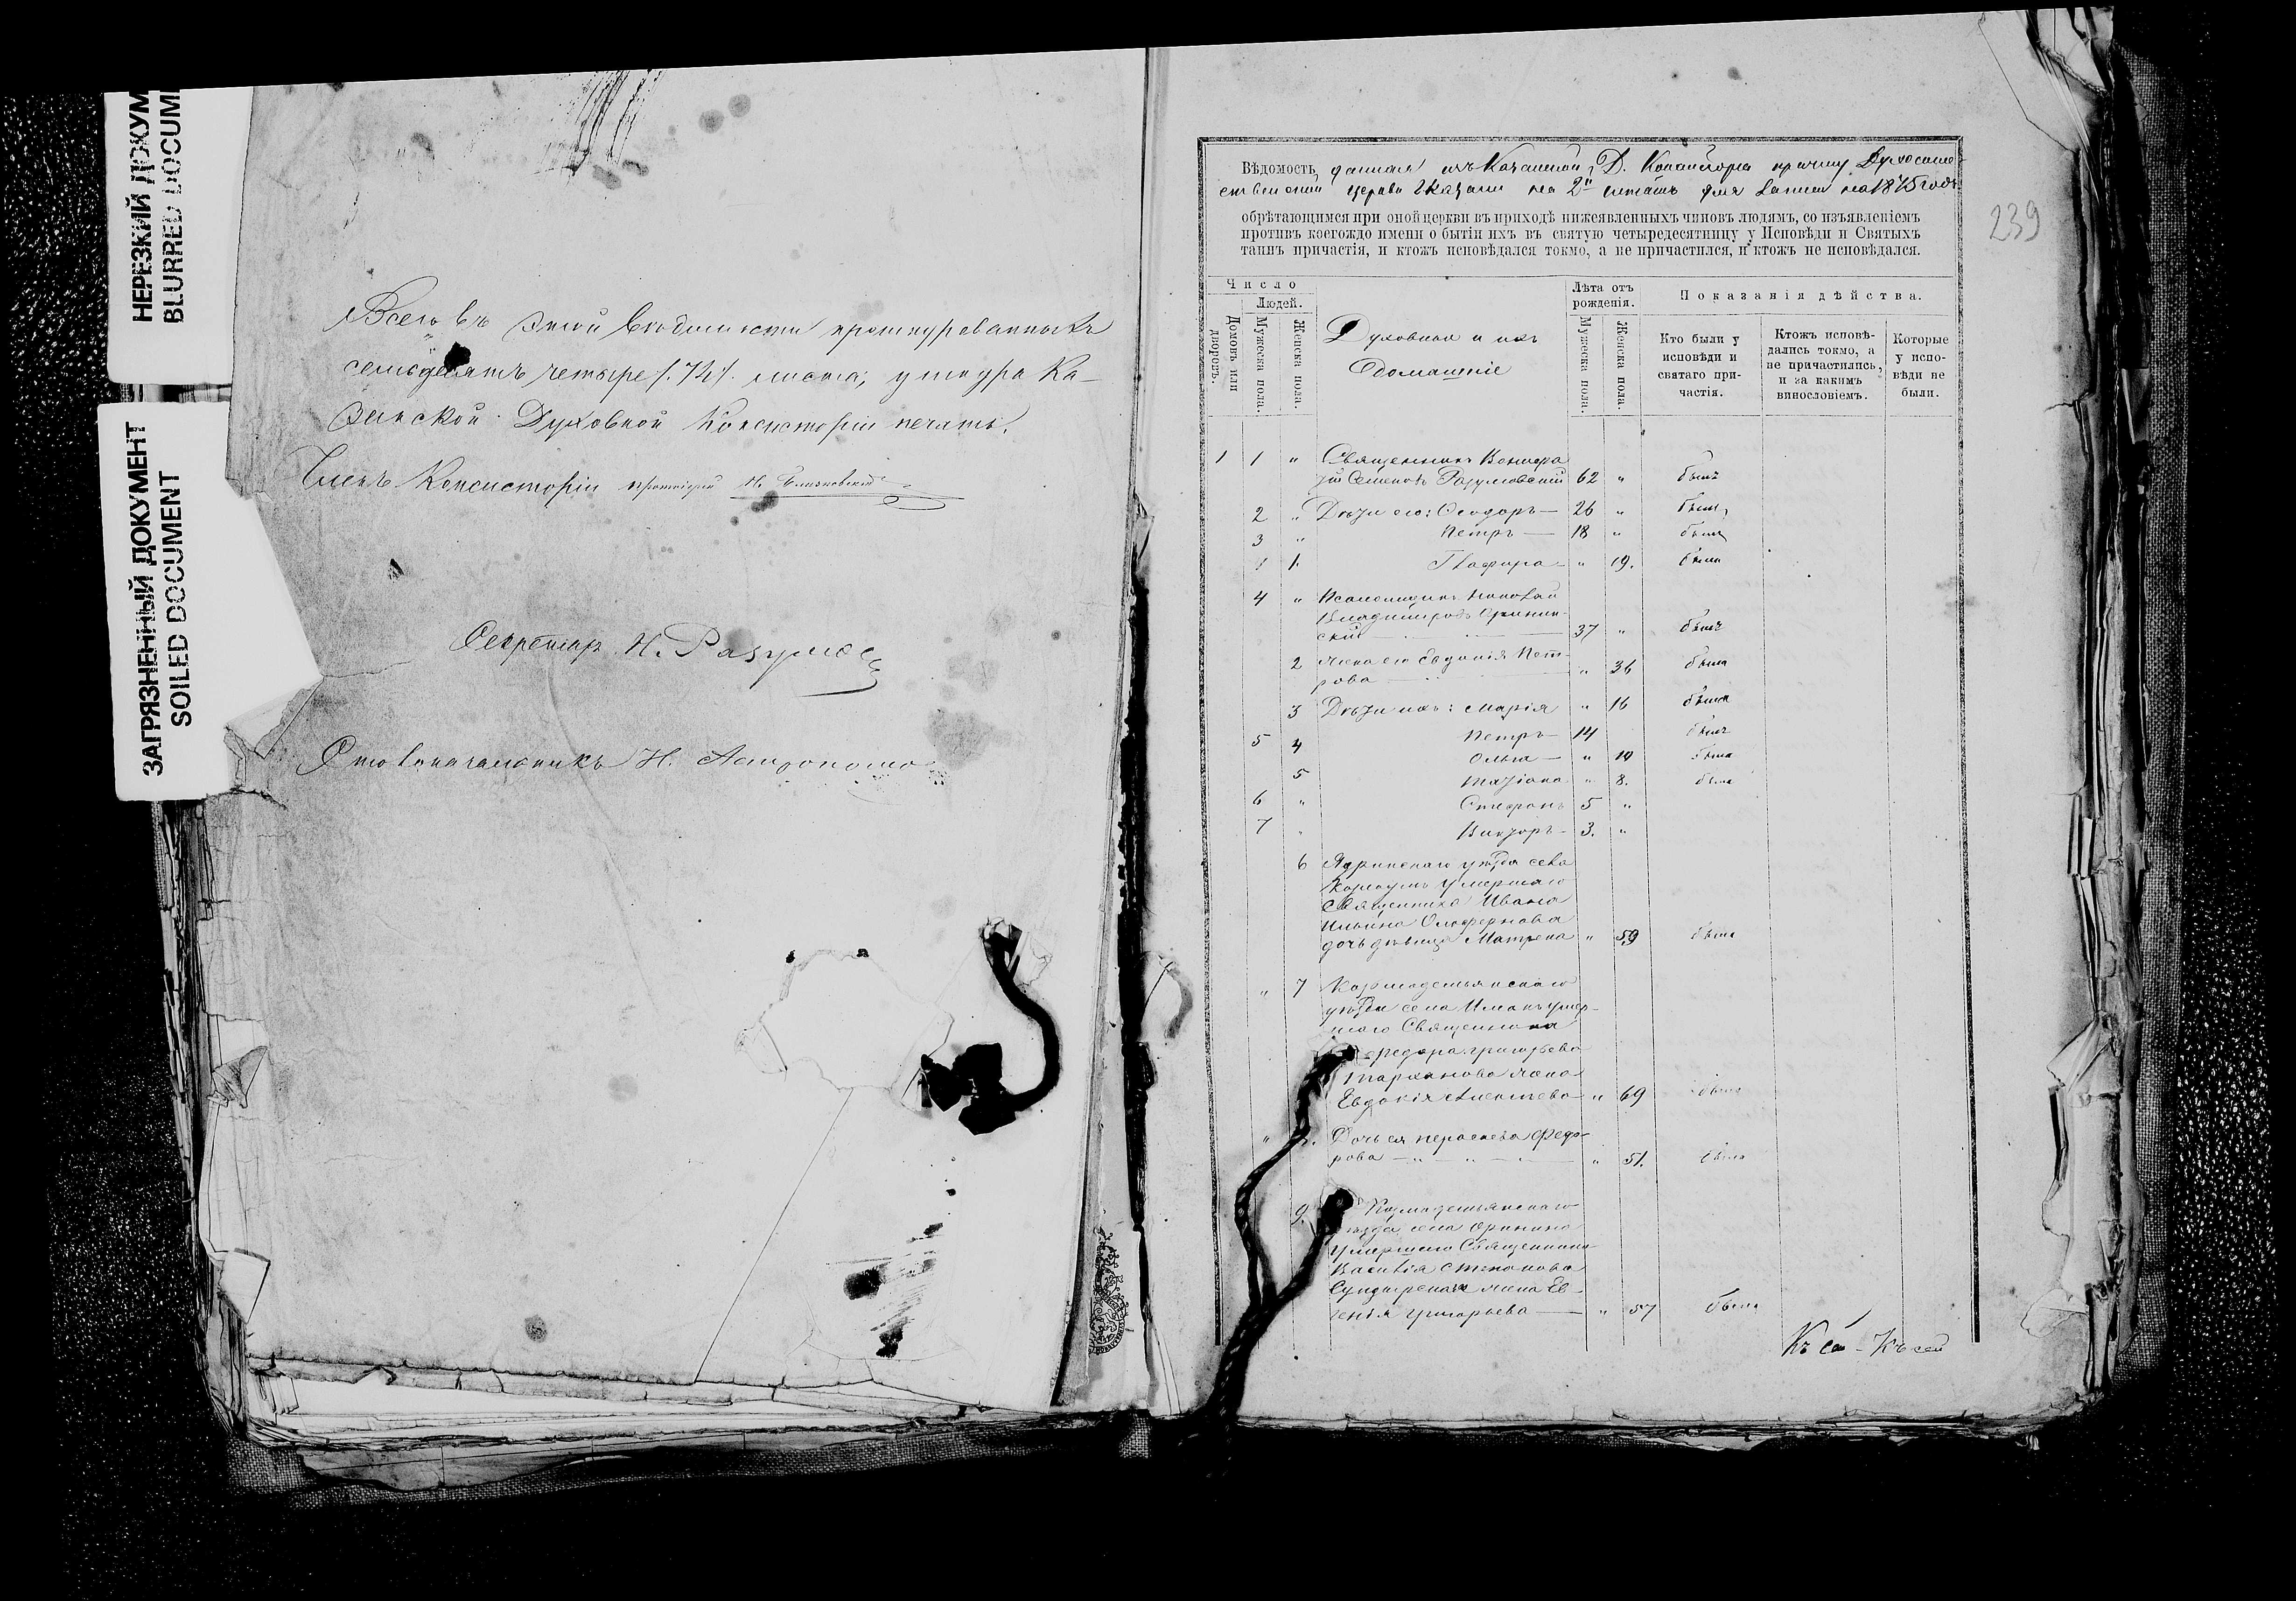 НЕРЕЗКИЙ ДОКУМ
BLURRED DOCUM
ЗАГРЯЗНЕННЫЙ ДОКУМЕНТ
SOILED DOCUMENT
Всего въ этой вѣдомости прошнурованныхъ
семьдесятъ четыре /.74/. листа; у шнура Ка-
занской Духовной Консисторіи печать.
Членъ Консисторіи протоіерей
Секретарь Н. Разумов
Столоначальникъ Н.
239
Вѣдомость, данная изъ Казанской Д. причту Духосоше-
ственской церкви на 2й для на 1875 годъ
обрѣтающимся при оной церкви въ приходѣ нижеявленныхъ чиновъ людямъ, со изъявленіемъ
противъ коегождо имени о бытіи ихъ въ святую четыредесятницу у Исповѣди и Святыхъ
таинъ причастія, и ктожъ исповѣдался токмо, а не причастился, и ктожъ не исповѣдался.
Число
Людей.
Домовъ или дворовъ.
Мужеска пола.
Женска пола.
Духовныя и ихъ
домашніе
Лѣта отъ рожденія.
Мужеска пола.
Женска пола.
Показанія дѣйства.
Кто были у исповѣди и святаго причастія.
Ктожъ исповѣдались токмо, а не причастились, и за какимъ винословіемъ.
Которые у исповѣди не были.
1 1 " Священникъ Вонифа
тій Семеновъ Разумовскій 62 " былъ
2 " Дѣти его: Ѳеодоръ — 26 " былъ
3 " Петръ — 18 " былъ
1. Глафира — " 19. была
4 " Псаломщикъ Николай
Владиміровъ Оринин-
скій 37 " былъ
2 Жена его Евдокія Пет-
рова " 36 была
3 Дѣти ихъ: Марія " 16 была
5 4 Петръ — 14 былъ
Ольга — " 10 была
5 Татіана " 8. была
6 " Стефанъ 5 "
7 " Викторъ — 3. "
6 Ядринскаго уѣзда села
умершаго
Священника Ивана
Ильина Олоферновa
дочь дѣвица Матрена " 59 была
" 7 Козмодемьянскаго
уѣзда села умер-
шаго Священника
Ѳедора Григорьева
Тарханова жена
Евдокія " 69 была
" Дочь ея Ѳедо-
рова — " — " — " 51. была
9. Козмодемьянскаго
уѣзда села Оринина
умершаго Священника
Василія Степанова
жена Ев-
генія Григорьева — " 57 была